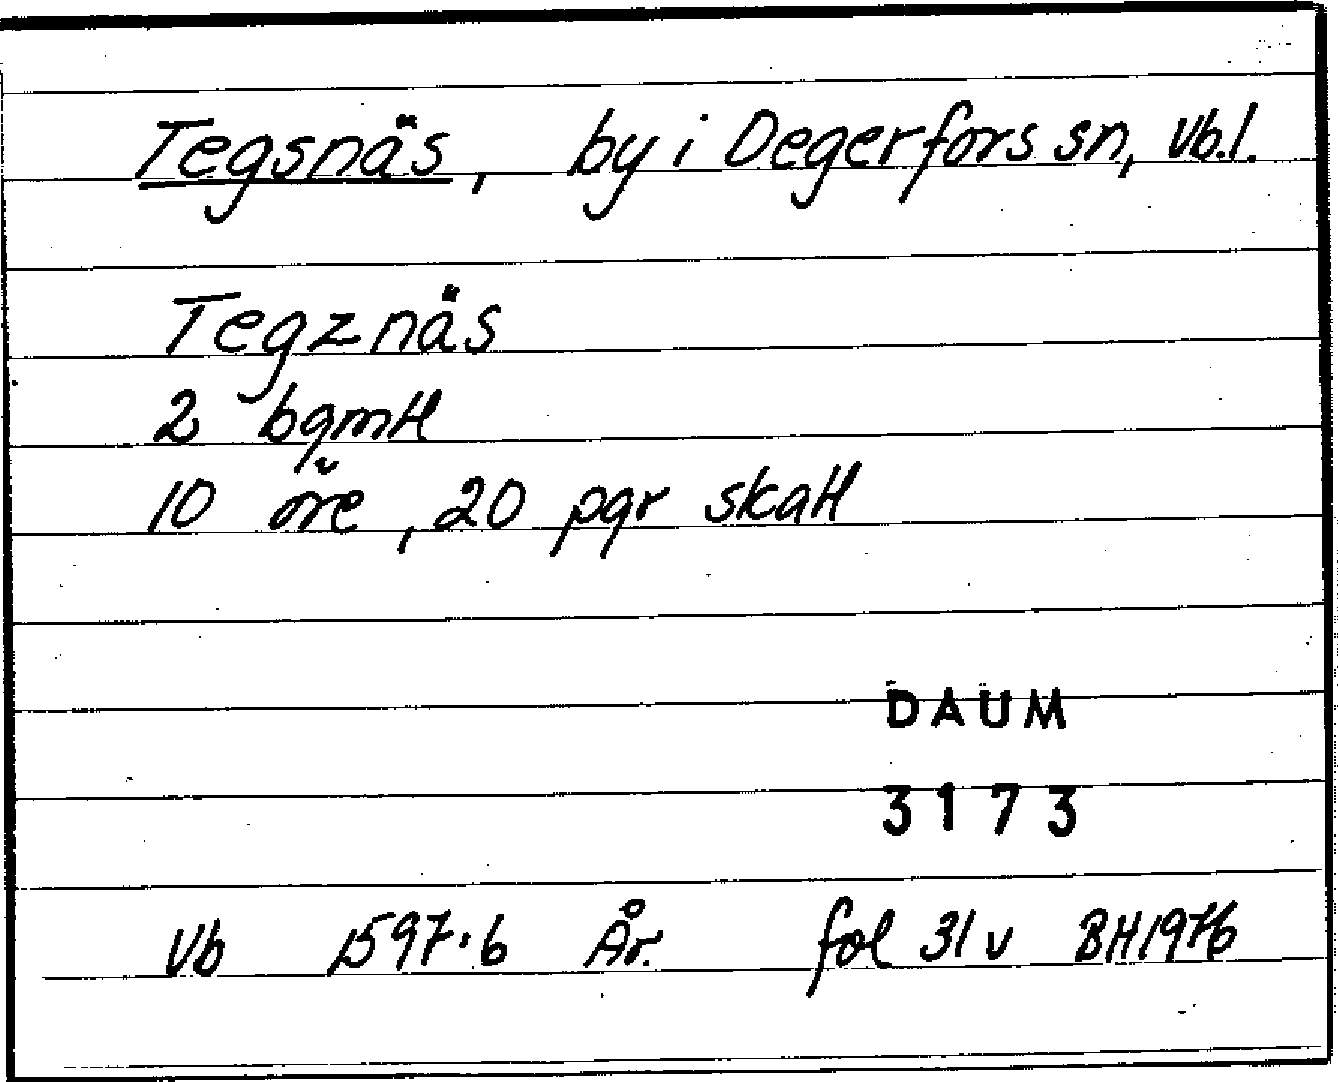 Tegsnäs, by i Degerfors sn, Vb.l.
Tegznäs
2 bgmtl
10 öre, 20 pgr skatt
DAUM
3173
Vb 1597:6 År. fol 31 v BH1976